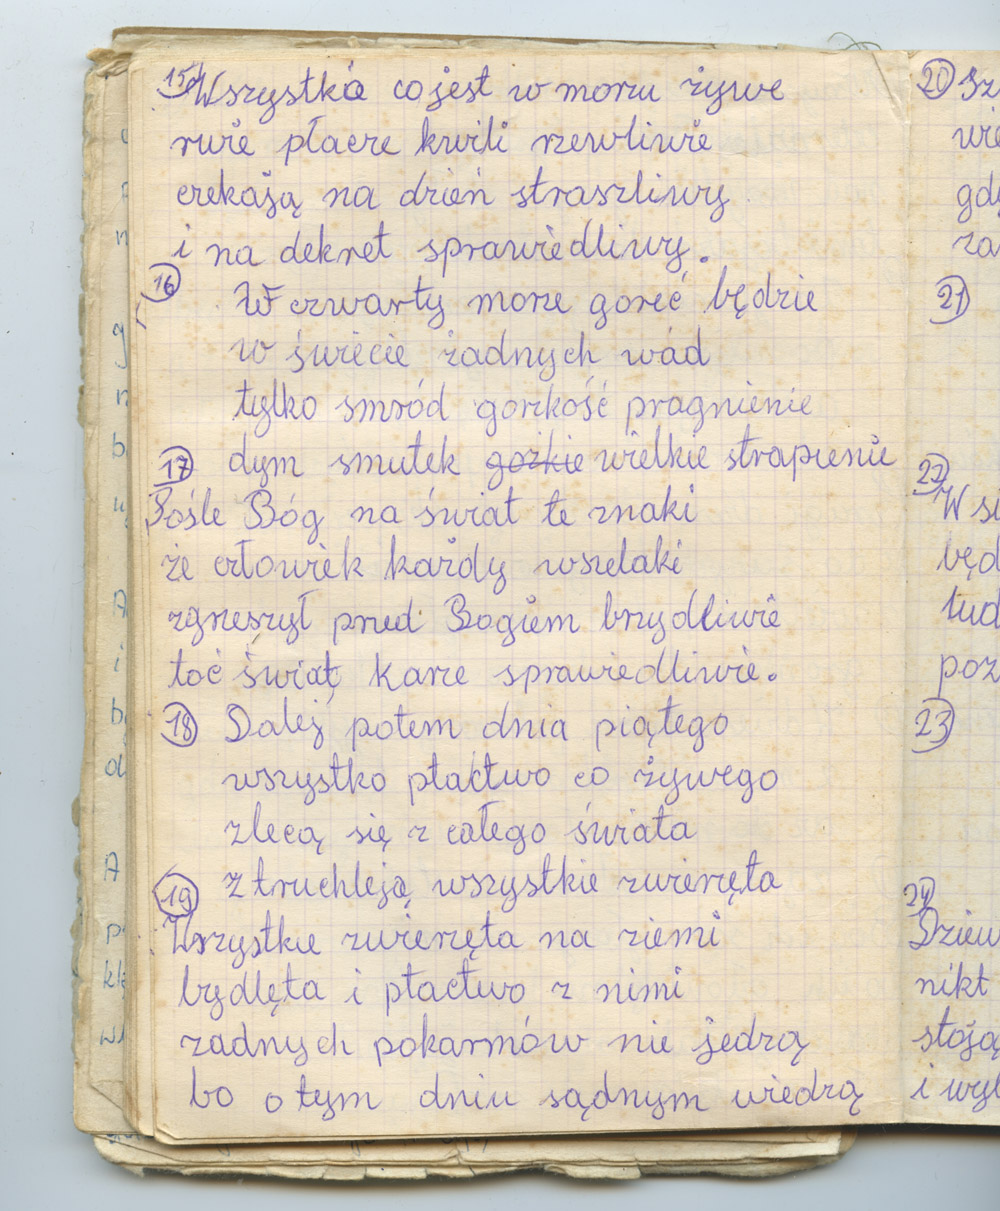 15 Wszystko co jest w morzu żywe
ruże płacze kwili rzewliwie
czekają na dzień straszliwy
i na dekret sprawiedliwy.
16
W czwarty morze goreć będzie
w świecie żadnych wád
tylko smród gorzkość pragnienie
17 dym smutek gożkie wielkie strapienie
Pośle Bóg na świat te znaki
że człowiek każdy wszelaki
zgrzeszył przed Bogiem brzydliwie
toć świat karze sprawiedliwie.
18 Dalej potem dnia piątego
wszystko ptactwo co żywego
zlecą się z całego świata
ztruchleją wszystkie zwierzęta
19
Wszystkie zwierzęta na ziemi
bydlęta i ptactwo z nimi
żadnych pokarmów nie jedzą
bo o tym dniu sądnym wiedzą
20 Sz
wie
gdy
za
21
22
W
będ
lud
poz
23
24
Dziew
nikt
stoją
i wyl